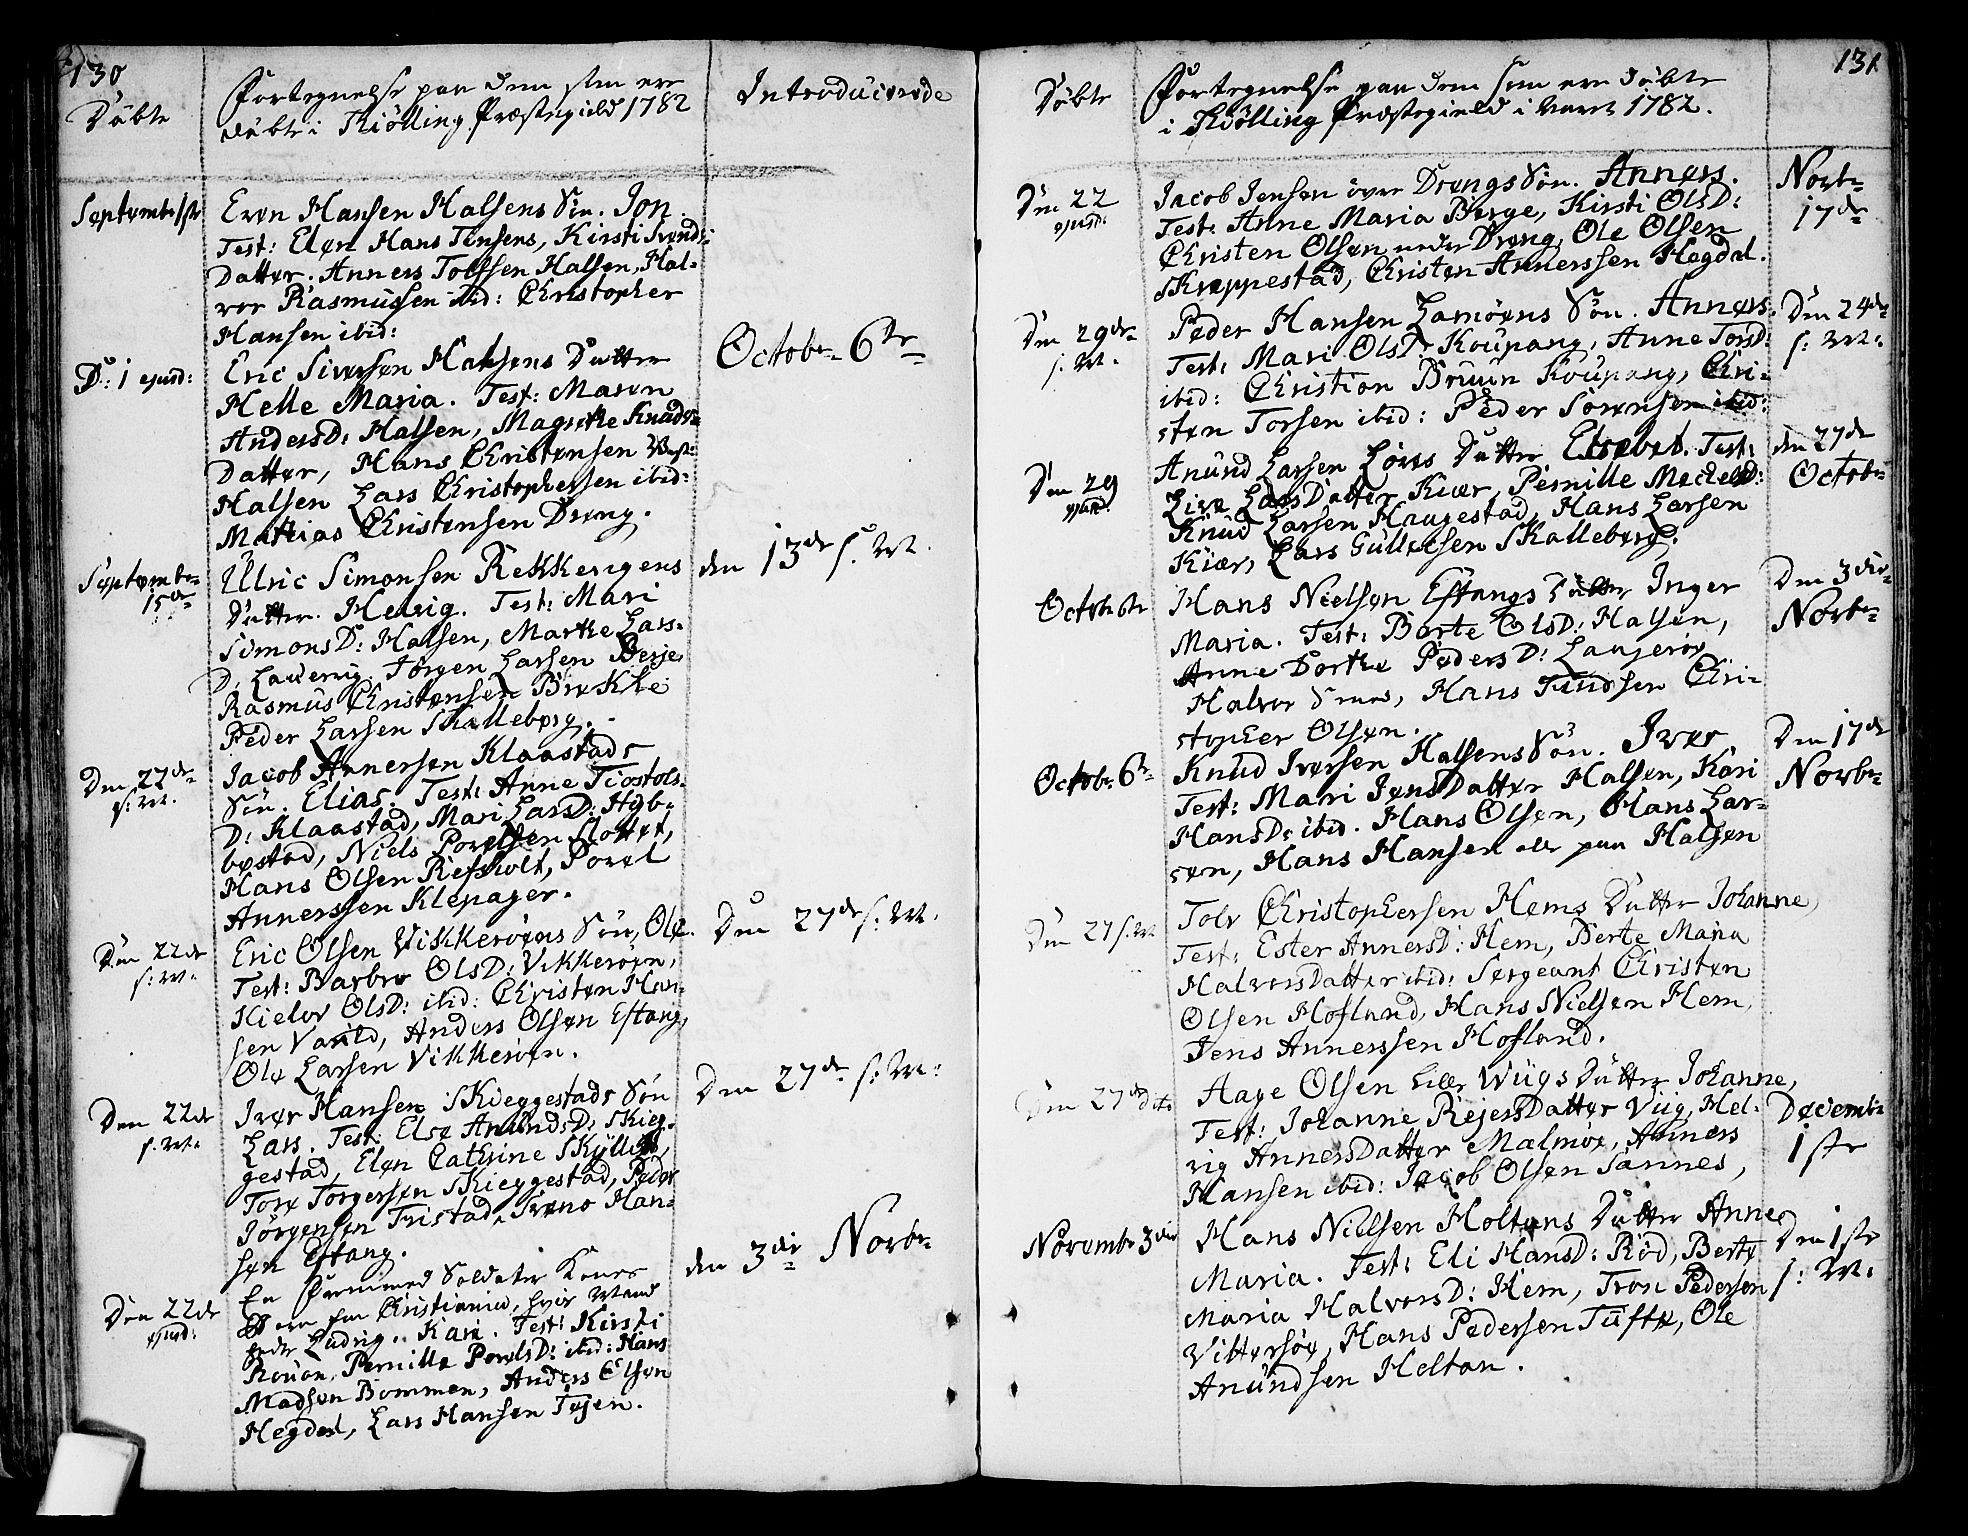 130
Döbte
Fortegnelse paa dem som ere
döbte i Kiölling Præstegield 1782
Introducerede
Septembr 1ste
Even Hansen Halsens Sön. Jon
Test: Elen Hans Jensens, Kirsti Svends
Datter. Anners Tolfsen Halsen, Hal-
vor Rasmussen ibid: Christopher
Hansen ibid:
D: 1 ejusd:
Eric Siversen Halsens Datter
Helle Maria. Test: Maren
AndersD: Halsen, Magrethe Knuds
Datter, Hans Christensen Vest-
Halsen Lars Christophersen ibid:
Mathias Christensen Dreng.
Octobr 6te
Septembr
15de
Ullric Simonsen Rekkevigens
Datter. Helvig. Test: Mari
SimonsD: Halsen, Marthe Lars-
D: Lauervig Jörgen Larsen Berje
Rasmus Christensen Brekke
Peder Larsen Skalleberg.
den 13de s: M.
Den 22de
s: M.
Jacob Annersen Klaastads
Sön. Elias. Test: Anne Tiostols
D: Klaastad, Mari LarsD: Hyb-
bestad, Niels Povelsen Slottet,
Hans Olsen Refsholt, Povel
Annerssen Klepager.
Den 22de
s: M.
Eric Olsen Vikkeröens Sön, Ole.
Test: Barbro OlsD: Vikkeröen,
Kielov OlsD: ibid: Christen Han-
sen Varild, Anders Olsen Eftang,
Ole Larsen Vikkeröen.
Den 27de s: M.
Den 22de
s: M.
Iver Hansen Skieggestads Sön
Lars. Test: Else AnundsD: Skieg-
gestad, Elen Cathrine Skyllies,
Tore Torgersen Skieggestad, Peder
Jörgensen Tristad, Svend Han-
sen Eftang.
Den 27de s: M:
Den 22de
ejusd:
En Permitered Soldater Kones
Barn fra Christiania, hvis Mand
heder Ludvig.. Kari. Test: Kirsti
Rouen, Pernille PovelsD: ibid: Hans
Madsen Bommen, Anders Olsen
Hegdal, Lars Hansen Töjen.
den 3die Novbr
131
Döbte
Fortegnelse paa dem som ere döbte
i Kiölling Præstegield i Aaret 1782.
Den 22
ejusd:
Jacob Jensen övre Drengs Sön. Anners.
Test: Anne Maria Berge, Kirsti OlsD:
Christen Olsen nedre Dreng, Ole Olsen
Skreppestad, Christen Annerssen Hegdal.
Novbr
17de
Den 29de
s: M.
Peder Hansen Lamöens Sön. Anners.
Test: Mari OlsD: Koupang, Anne TorsD:
ibid: Christian Bruun Koupang, Chri-
sten Torsen ibid: Peder Sörensen ibid:
Den 24de
s: M.
Den 29
ejusd.
Anund Larsen Löves Datter Elsebet. Test:
Live LarsDatter Kiær, Pernille MechelsD:
Knud Larsen Haugestad, Hans Larsen
Kiær, Lars Gullecsen Skalleberg.
den 27de
Octobr
Octobr 6te
Hans Nielsen Eftangs Datter Inger
Maria. Test: Berte OlsD: Halsen,
Anne Dorthe PedersD: Lauverøe
Halvor Smed, Hans Knudsen Chri-
stopher Olsen.
Den 3die
Novbr
Octobr 6te
Knud Iversen Halsens Sön. Iver
Test: Mari JensDatter Halsen, Kari
HansD: ibid. Hans Olsen, Hans Lar-
sen, Hans Hansen alle paa Halsen
Den 17de
Novbr
Den 27 s: M
Tolv Christophersen Hems Datter Johanne,
Test: Ester AnnersD: Hem, Berte Maria
HalvorsDatter ibid: Sergeant Christen
Olsen Hofland, Hans Nielsen Hem,
Jens Annerssen Hofland.
Den 27de dito
Aage Olsen Lille Wiigs Datter Johanne,
Test: Johanne RejersDatter Viig, Hel-
vig AnnersDatter Malmöe, Anners
Hansen ibid: Jacob Olsen Sannes,
Decembr
1ste
Novembr 3die
Hans Nielsen Holtans Datter Anne
Maria. Test: Eli HansD: Röd, Berte
Maria HalvorsD: Hem, Tron Pedersen
Vittersöe, Hans Pedersen Tufte, Ole
Anundsen Holtan.
Den 1ste
s: M.